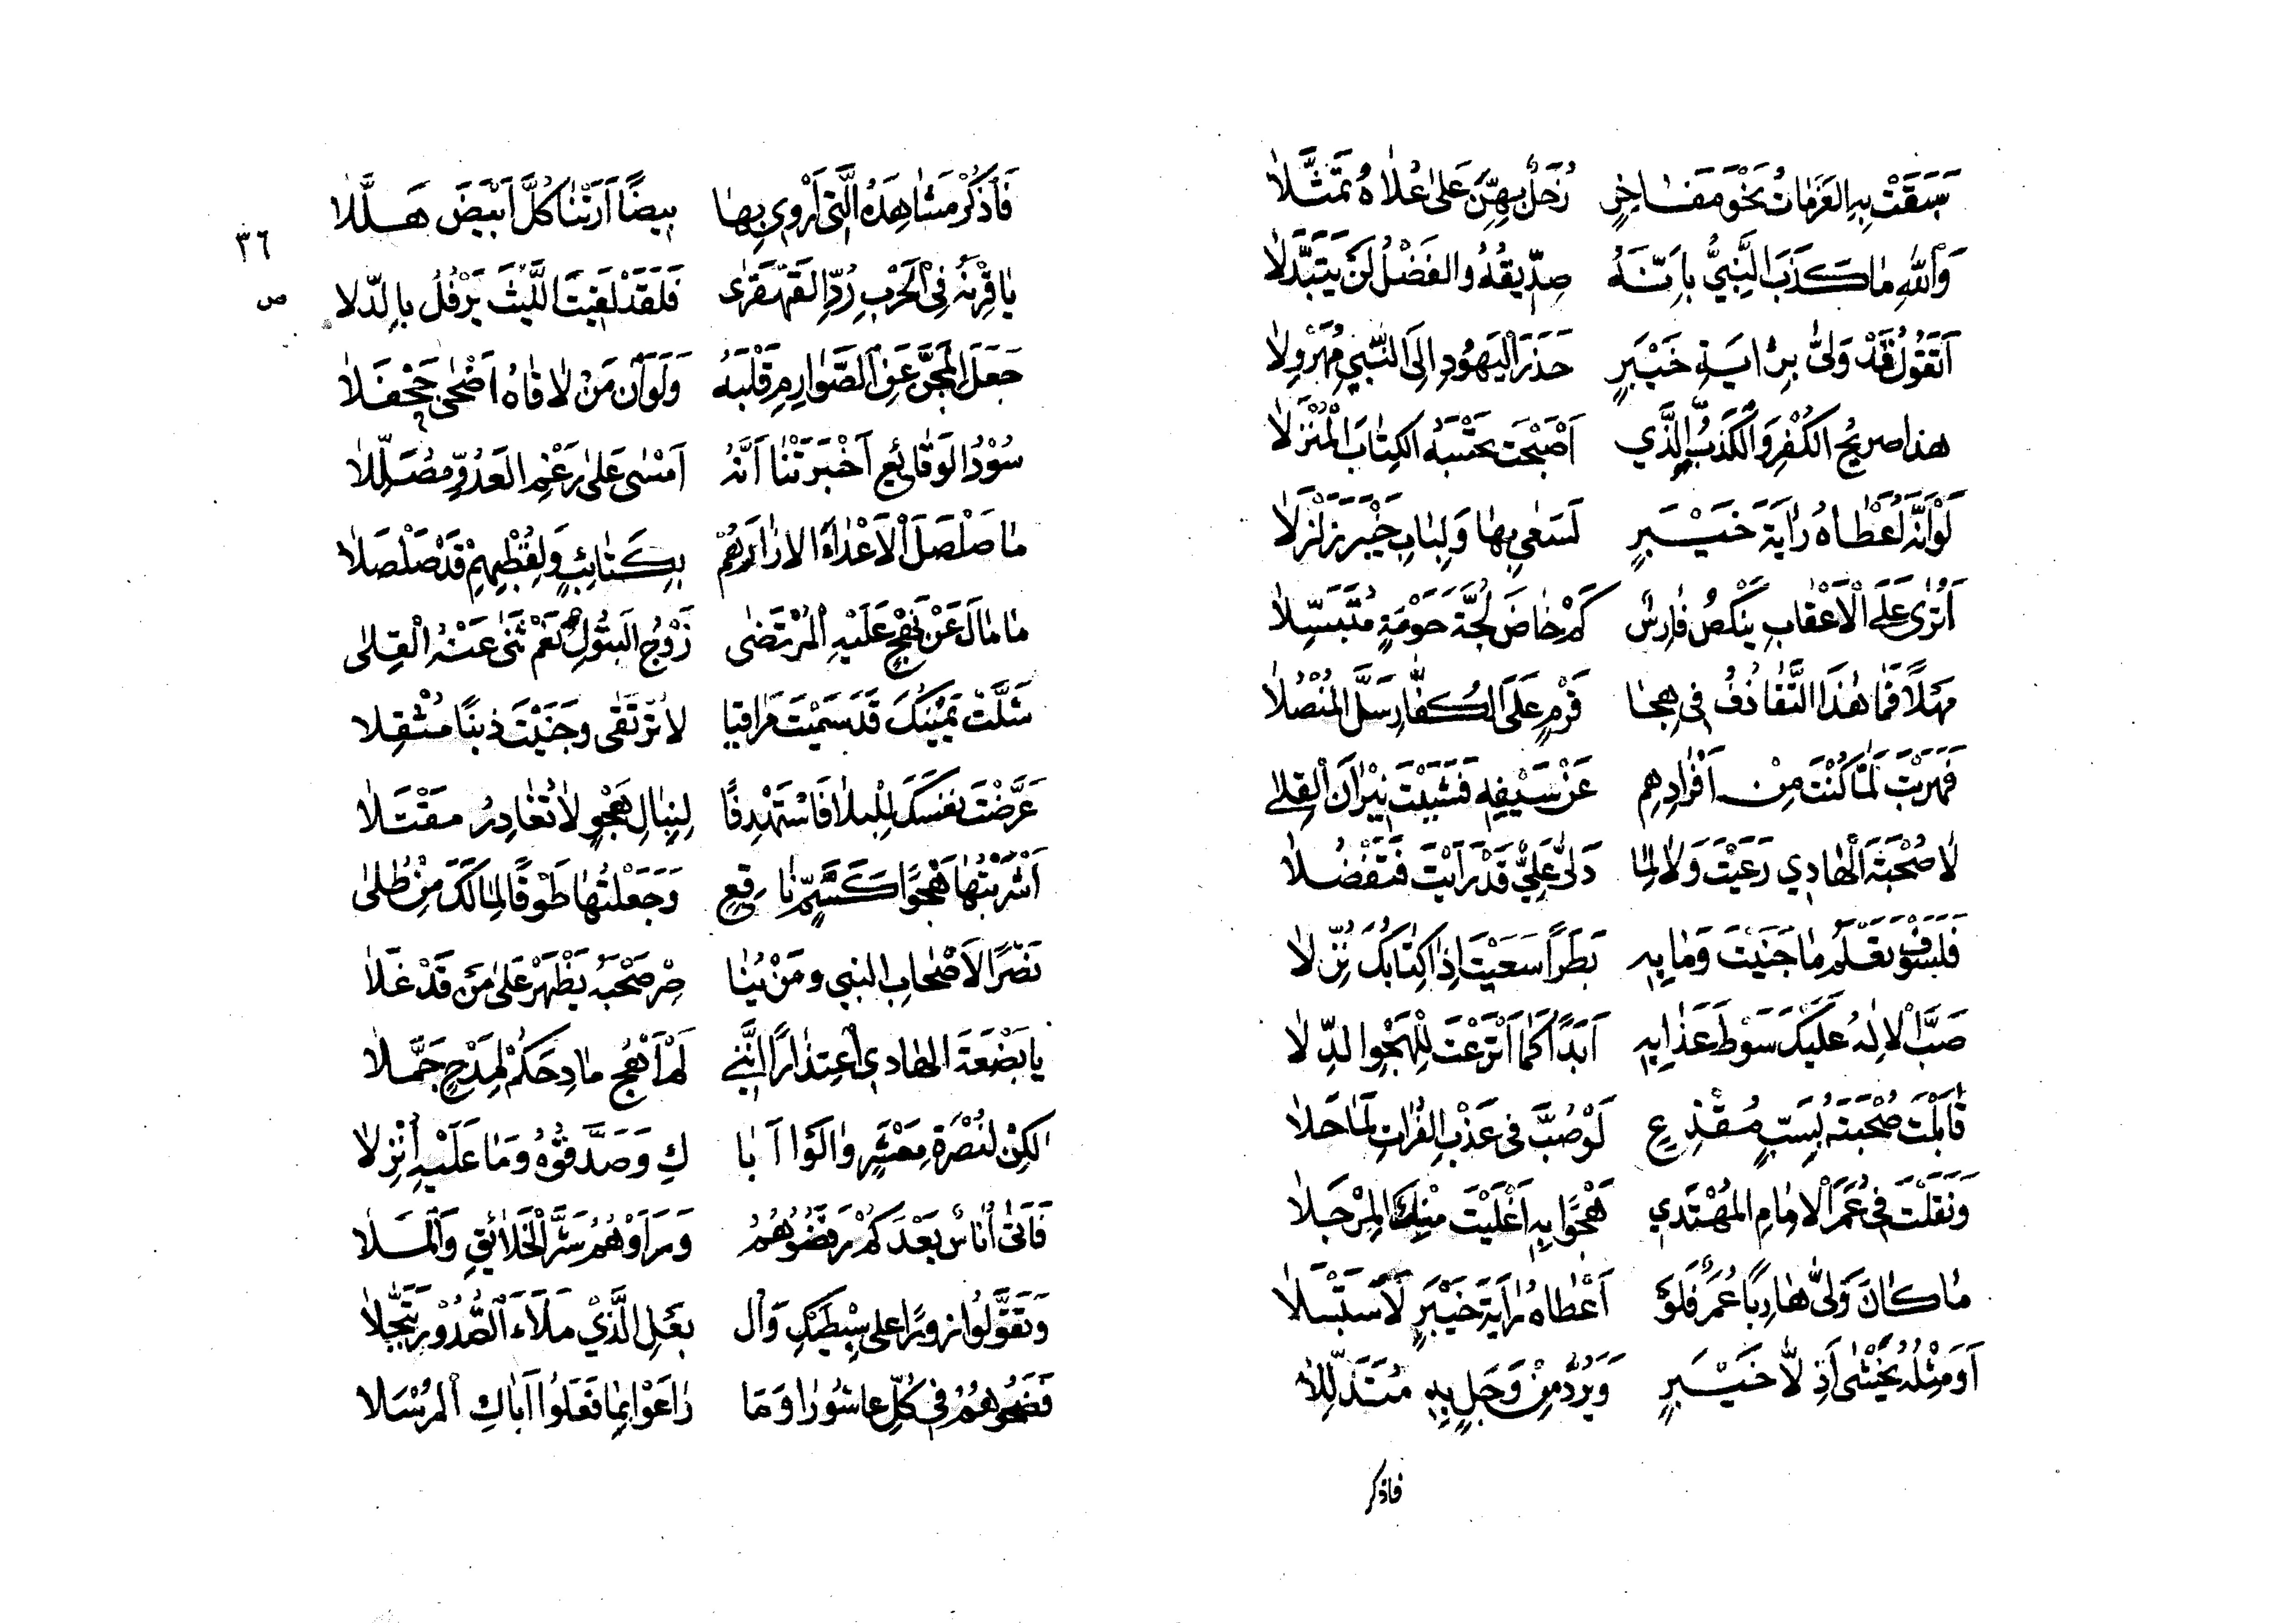 سَبَقَتْ بِهِ العَزَمَاتُ نَحْوَ مَفَاخِرٍ زُحَلٌ بِهِنَّ عَلىٰ عُلاَهُ تَمَثَّلاَ
وَاللهِ مَا كَذَبَ النَّبِيُّ بِأَنَّهُ صِدِّيقُهُ وَالفَضْلُ لَنْ يَتَبَدَّلاَ
أَتَقُولُ قَدْ وَلىَّ بِرَايَةِ خَيْبَرٍ حَذَرَ اليَهُودِ إِلَى النَّبِيِّ مُهَرْوِلاَ
هذا صريحُ الكُفْرِ وَالكَذِبُ الَّذِي أَصْبَحْتَ تَحْسَبُهُ الكِتَابَ المُنْزَلاَ
لَوْ أَنَّهُ أَعْطَاهُ رَايَةَ خَيْبَرٍ لَسَعىٰ بِهَا وَلِبَابِ خَيْبَرَ زَلْزَلاَ
أَتُرَى عَلَى الأَعْقَابِ يَنْكِصُ فَارِسٌ كَمْ خَاضَ لُجَّةَ حَوْمَةٍ مُتَبَسِّلاَ
مَهْلاً فَمَا هٰذَا التَّقَاذُفُ فِي هِجَا قَرْمٍ عَلَى الكُفَّارِ سَلَّ المُنْصُلاَ
فَهَرَبْتَ لَمَّا كُنْتَ مِنْ أَفْرَادِهِمْ عَنْ سَيْفِهِ فَشَبَبْتَ نِيْرَانَ القِلىٰ
لاَ صُحْبَةَ الهَادِي رَعَيْتَ وَلاَ لِمَا دَلىَّ عَلِيٌّ قَدْ رَأَيْتَ فَتَفْضُلاَ
فَلَسَوْفَ تَعْلَمُ مَا جَنَيْتَ وَمَا بِهِ بَطَراً سَعَيْتَ إِذَا كِتَابُكَ نُزِّلاَ
صَبَّ الإِلٰهُ عَلَيْكَ سَوْطَ عَذَابِهِ أَبَدًا كَمَا أَتْرَعْتَ لِلْهَجْوِ الدِّلاَ
قَابَلْتَ صُحْبَتَهُ بِسَبٍّ مُقْذِعٍ لَوْ صُبَّ فِي عَذْبِ الفُرَاتِ لَمَا حَلاَ
وَنَقَلْتَ فِي عُمَرَ الإِمَامِ المُهْتَدِي هَجْوًا بِهِ أَغْلَيْتَ مِنْكَ المِرْجَلاَ
مَا كَانَ وَلىَّ هَارِبًا عُمَرٌ فَلَوْ أَعْطَاهُ رَايَةَ خَيْبَرٍ لاَسْتَبْسَلاَ
أَوَمِثْلُهُ يَخْشٰى أَذِلاَّ خَيْبَرٍ وَيَرُدُّ مِنْ وَجَلٍ بِهِ مُتَذَلِّلاَ
فاذكر
٣٦
ص
فَاذْكُرْ مَشَاهِدَهُ الَّتِي أَرْوِي بِهَا بِيضًا أَرَتْنَا كُلَّ أَبْيَضَ هَلَّلاَ
يَا قِرْنَهُ فِي الحَرْبِ رُدَّ القَهْقَرىٰ فَلَقَدْ لَقِيتَ اللَّيْثَ يَرْفُلُ بِالدِّلاَ
جَعَلَ المِجَنَّ عَنِ الصَّوَارِمِ قَلْبَهُ وَلَوَ أنَّ مَنْ لاَقَاهُ أَضْحٰى جَحْفَلاَ
سُوْدُ الوَقَائِعِ أَخْبَرَتْنَا أَنَّهُ أَمْسٰى عَلىٰ رَغْمِ العَدُوِّ مُضَلِّلاَ
مَا صَلْصَلَ الأَعْدَاءُ إلاَ زَارَهُمْ بِكَتَائِبٍ وَلِقُطْبِهِمْ قَدْ صَلْصَلاَ
مَا مَالَ عَنْ نَهْجٍ عَلَيْهِ المُرْتَضٰى زَوْجُ البَتُولِ نَعَمْ ثَنٰى عَنْهُ القِلىٰ
شَلَّتْ يَمِيْنُكَ قَدْ سَمَيْتَ مَرَاقِيًا لاَ تُرْتَقٰى وجَنَيْتَ ذَنْبًا مُثْقِلاَ
عَرَّضْتَ نَفْسَكَ لِلْبَلاَ فَاسْتَهْدِفًا لِنِبَالِ هَجْوٍ لاَ تُغَادِرُ مَقْتَلاَ
أُشْرِبْتُهَا هَجْوًا كَسُمٍّ نَاقِعٍ وَجَعَلْتُهَا طَوْقًا لِمَا لَكَ مِنْ طُلىٰ
نَصْرًا لأَصْحَابِ النبي ومَنْ يُنَا صِرْ صَحْبَهُ يَظْهَرْ عَلىٰ مَنْ قَدْ غَلاَ
يَا بَضْعَةَ الهَادِي اعْتِذَارًا إِنَّنِي لَمْ أَهْجُ مَادِحَكُمْ لِمَدْحٍ جَمَّلاَ
لكِنْ لِنُصْرَةِ مَعْشَرٍ وَالَوْا أَبَا كِ وَصَدَّقُوهُ وَمَا عَلَيْهِ أُنْزِلاَ
فَأَتىٰ أُنَاسٌ بَعْدَكُمْ رَفَضُوهُمُ وَرَأَوْهُمُ شَرَّ الخَلاَئِقِ وَالمَلاَ
وَتَقَوَّلُوا زورًا على سِبْطَيْكِ وَال بَعْلِ الَّذِيْ مَلأَ الصُّدُوْرَ تَبَجُّلاَ
فَضَحُوهُمُ فِي كُلِّ عَاشُورَا وَمَا رَاعَوْا بِمَا فَعَلُوا أَبَاكِ المُرْسَلاَ